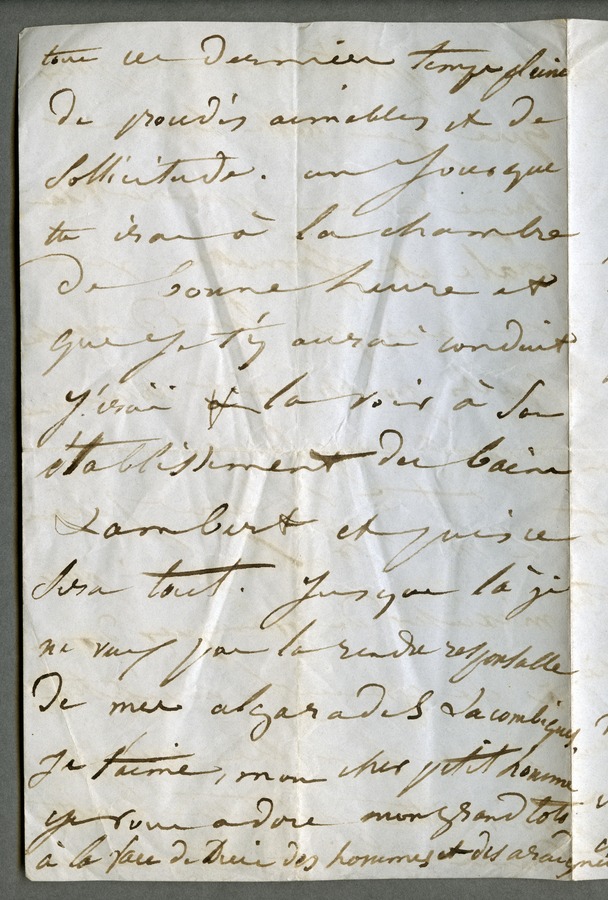 tous ces derniers temps pleine
de procédés aimables et de
sollicitude. un jour que
tu iras à la chambre
de bonne heure et
que je t'y aurai conduit
j'irai la voir à son
établissement des bains
Lambert et puis ce
sera tout. Jusque là je
ne veux pas la rendre responsable
de mes algarades Lacombiques
Je t'aime, mon cher petit homme
je vous adore mon grand toto
à la face de Dieu des hommes et des araignées